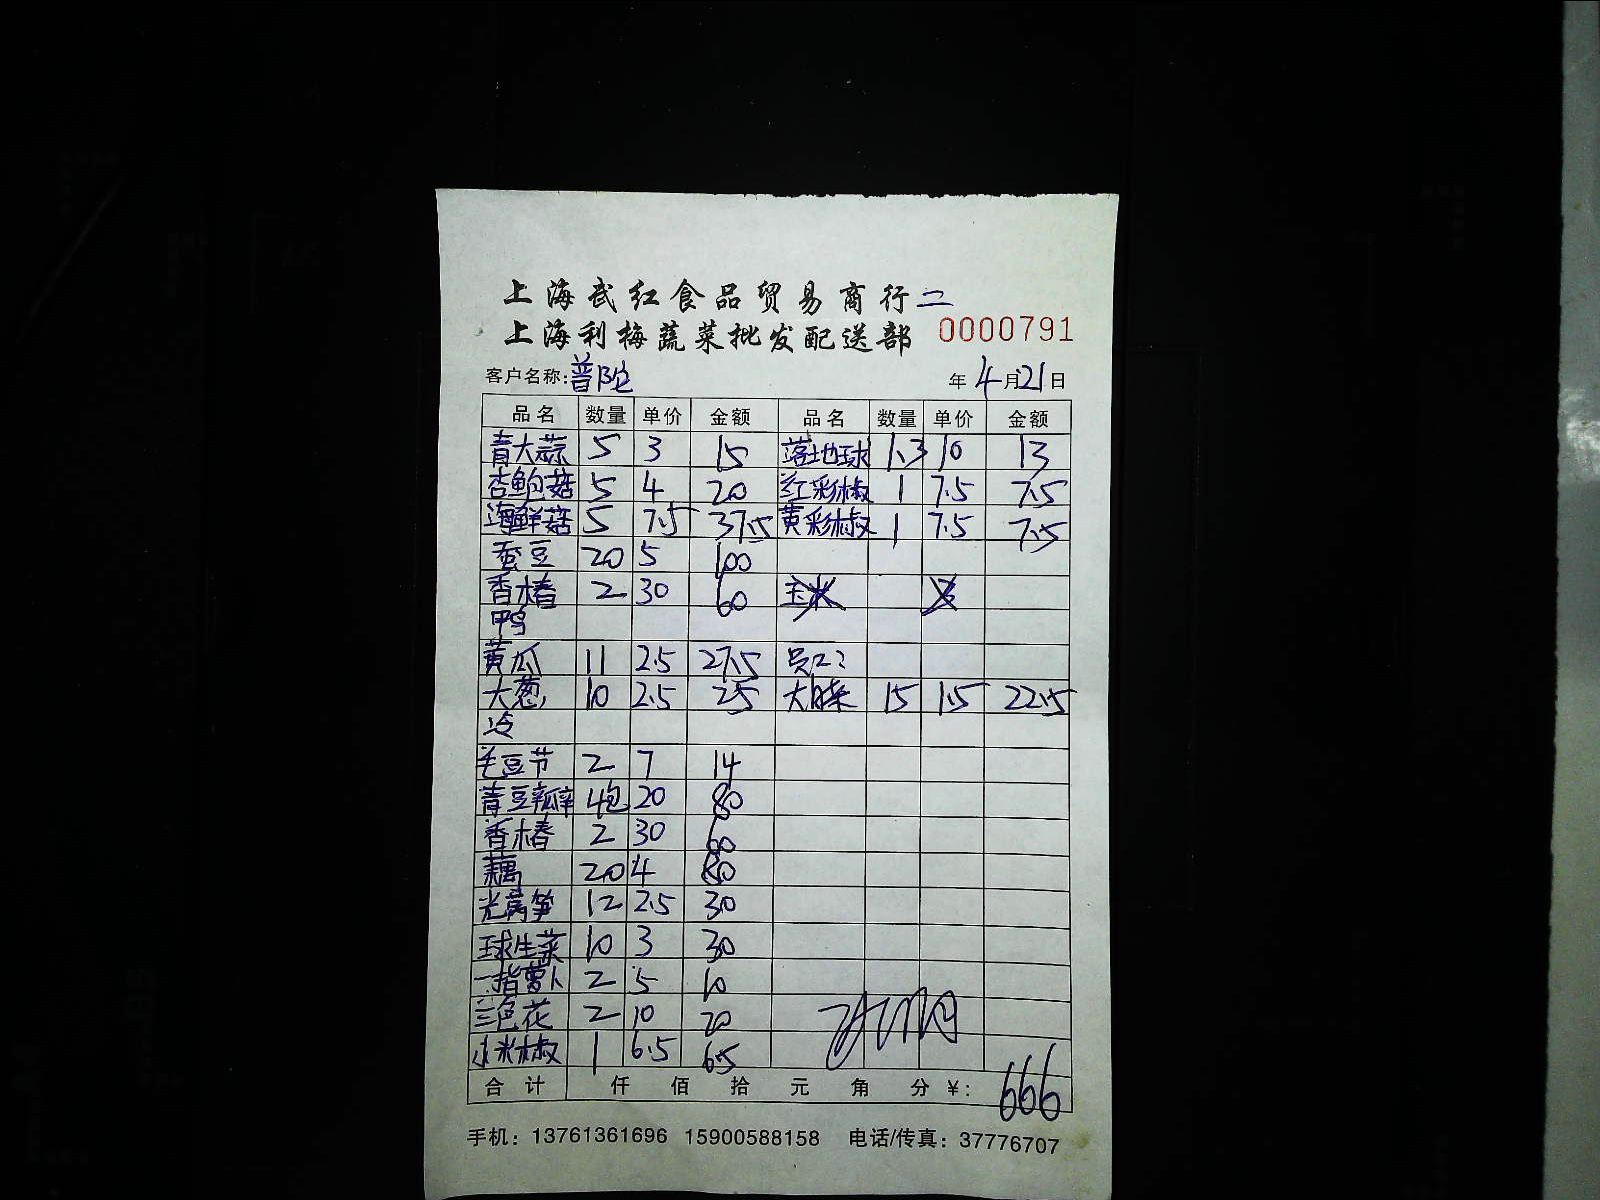 上海武红食品贸易商行二
上海利梅蔬菜批发配送部 0000791
客户名称:普陀 年4月21日
品名 数量 单价 金额 品名 数量 单价 金额
青大蒜 5 3 15 落地球 1.3 10 13
杏鲍菇 5 4 20 红彩椒 1 7.5 7.5
海鲜菇 5 7.5 37.5 黄彩椒 1 7.5 7.5
蚕豆 20 5 100
香椿 2 30 60 玉米
鸭
黄瓜 11 2.5 27.5 员工:
大葱 10 2.5 25 大白菜 15 1.5 22.5
冷
毛豆节 2 7 14
青豆瓣 4包 20 80
香椿 2 30 60
藕 20 4 80
光莴笋 12 2.5 30
球生菜 10 3 30
一指萝卜 2 5 10
兰色花 2 10 20
小米椒 1 6.5 6.5
合计 仟 佰 拾 元 角 分 ¥: 666
手机: 13761361696 15900588158 电话/传真: 37776707